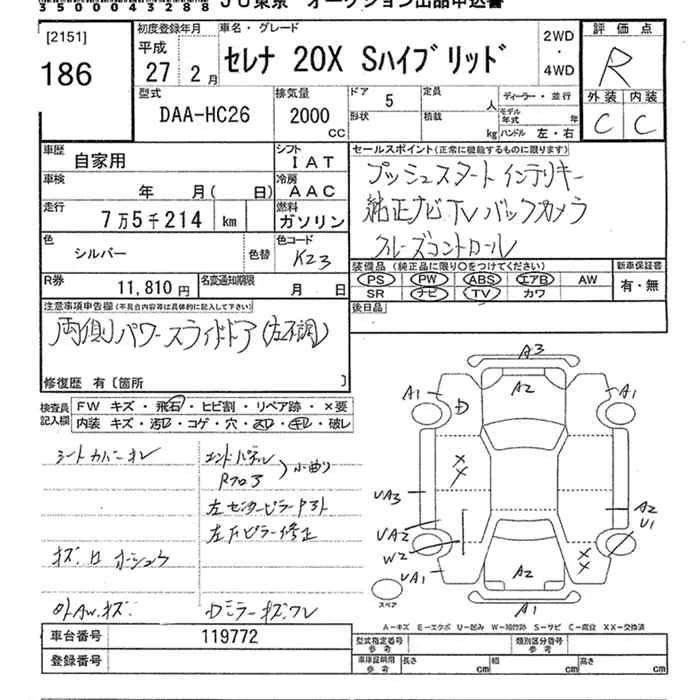 35000432 88 JU東京 オークション出品申込書
[2151]
186
初度登録年月
平成
27年 2月
車名・グレード
セレナ 20X Sハイブリッド
2WD
・
4WD
評価点
R
外装 内装
C C
型式
DAA-HC26
排気量
2000
CC
ドア 5
形状
定員 人
積載 kg
ディーラー・並行
モデル年式 年
ハンドル 左・右
車歴
自家用
シフト
IAT
車検
年 月( 日)
冷房
AAC
走行
7万5千214 km
燃料
ガソリン
色
シルバー
色替
色コード
K23
R券
11,810 円
名変通知期限
月 日
セールスポイント(正常に機能するものに限ります)
プッシュスタート インテリキー
純正ナビ TV バックカメラ
クルーズコントロール
装備品(純正品に限り○をつけてください)
PS PW ABS エアB AW
SR ナビ TV カワ
新車保証書
有・無
後日品
注意事項申告欄(不具合内容等は具体的に記入して下さい)
両側パワースライドドア(左不調)
修復歴 有〔箇所 〕
検査員
記入欄
FW キズ・飛石・ヒビ割・リペア跡・×要
内装 キズ・汚レ・コゲ・穴・スレ・キレ・破レ
シートカバー オレ
エンドパネル
Rフロア
小曲り
左センターピラー
左Fピラー修正
外AW.キズ.
Dミラーキズワレ
A3
A1
A2
A1
D
××
UA3
UA2
W2
UA1
A2
U1
××
A2
A1
スペア
A－キズ E－エクボ U－凹み W－補修跡 S－サビ C－腐食 XX－交換済
車台番号
119772
登録番号
型式指定番号
参考
類別区分番号
参考
車庫証明用
参考
長さ cm
幅 cm
高さ cm